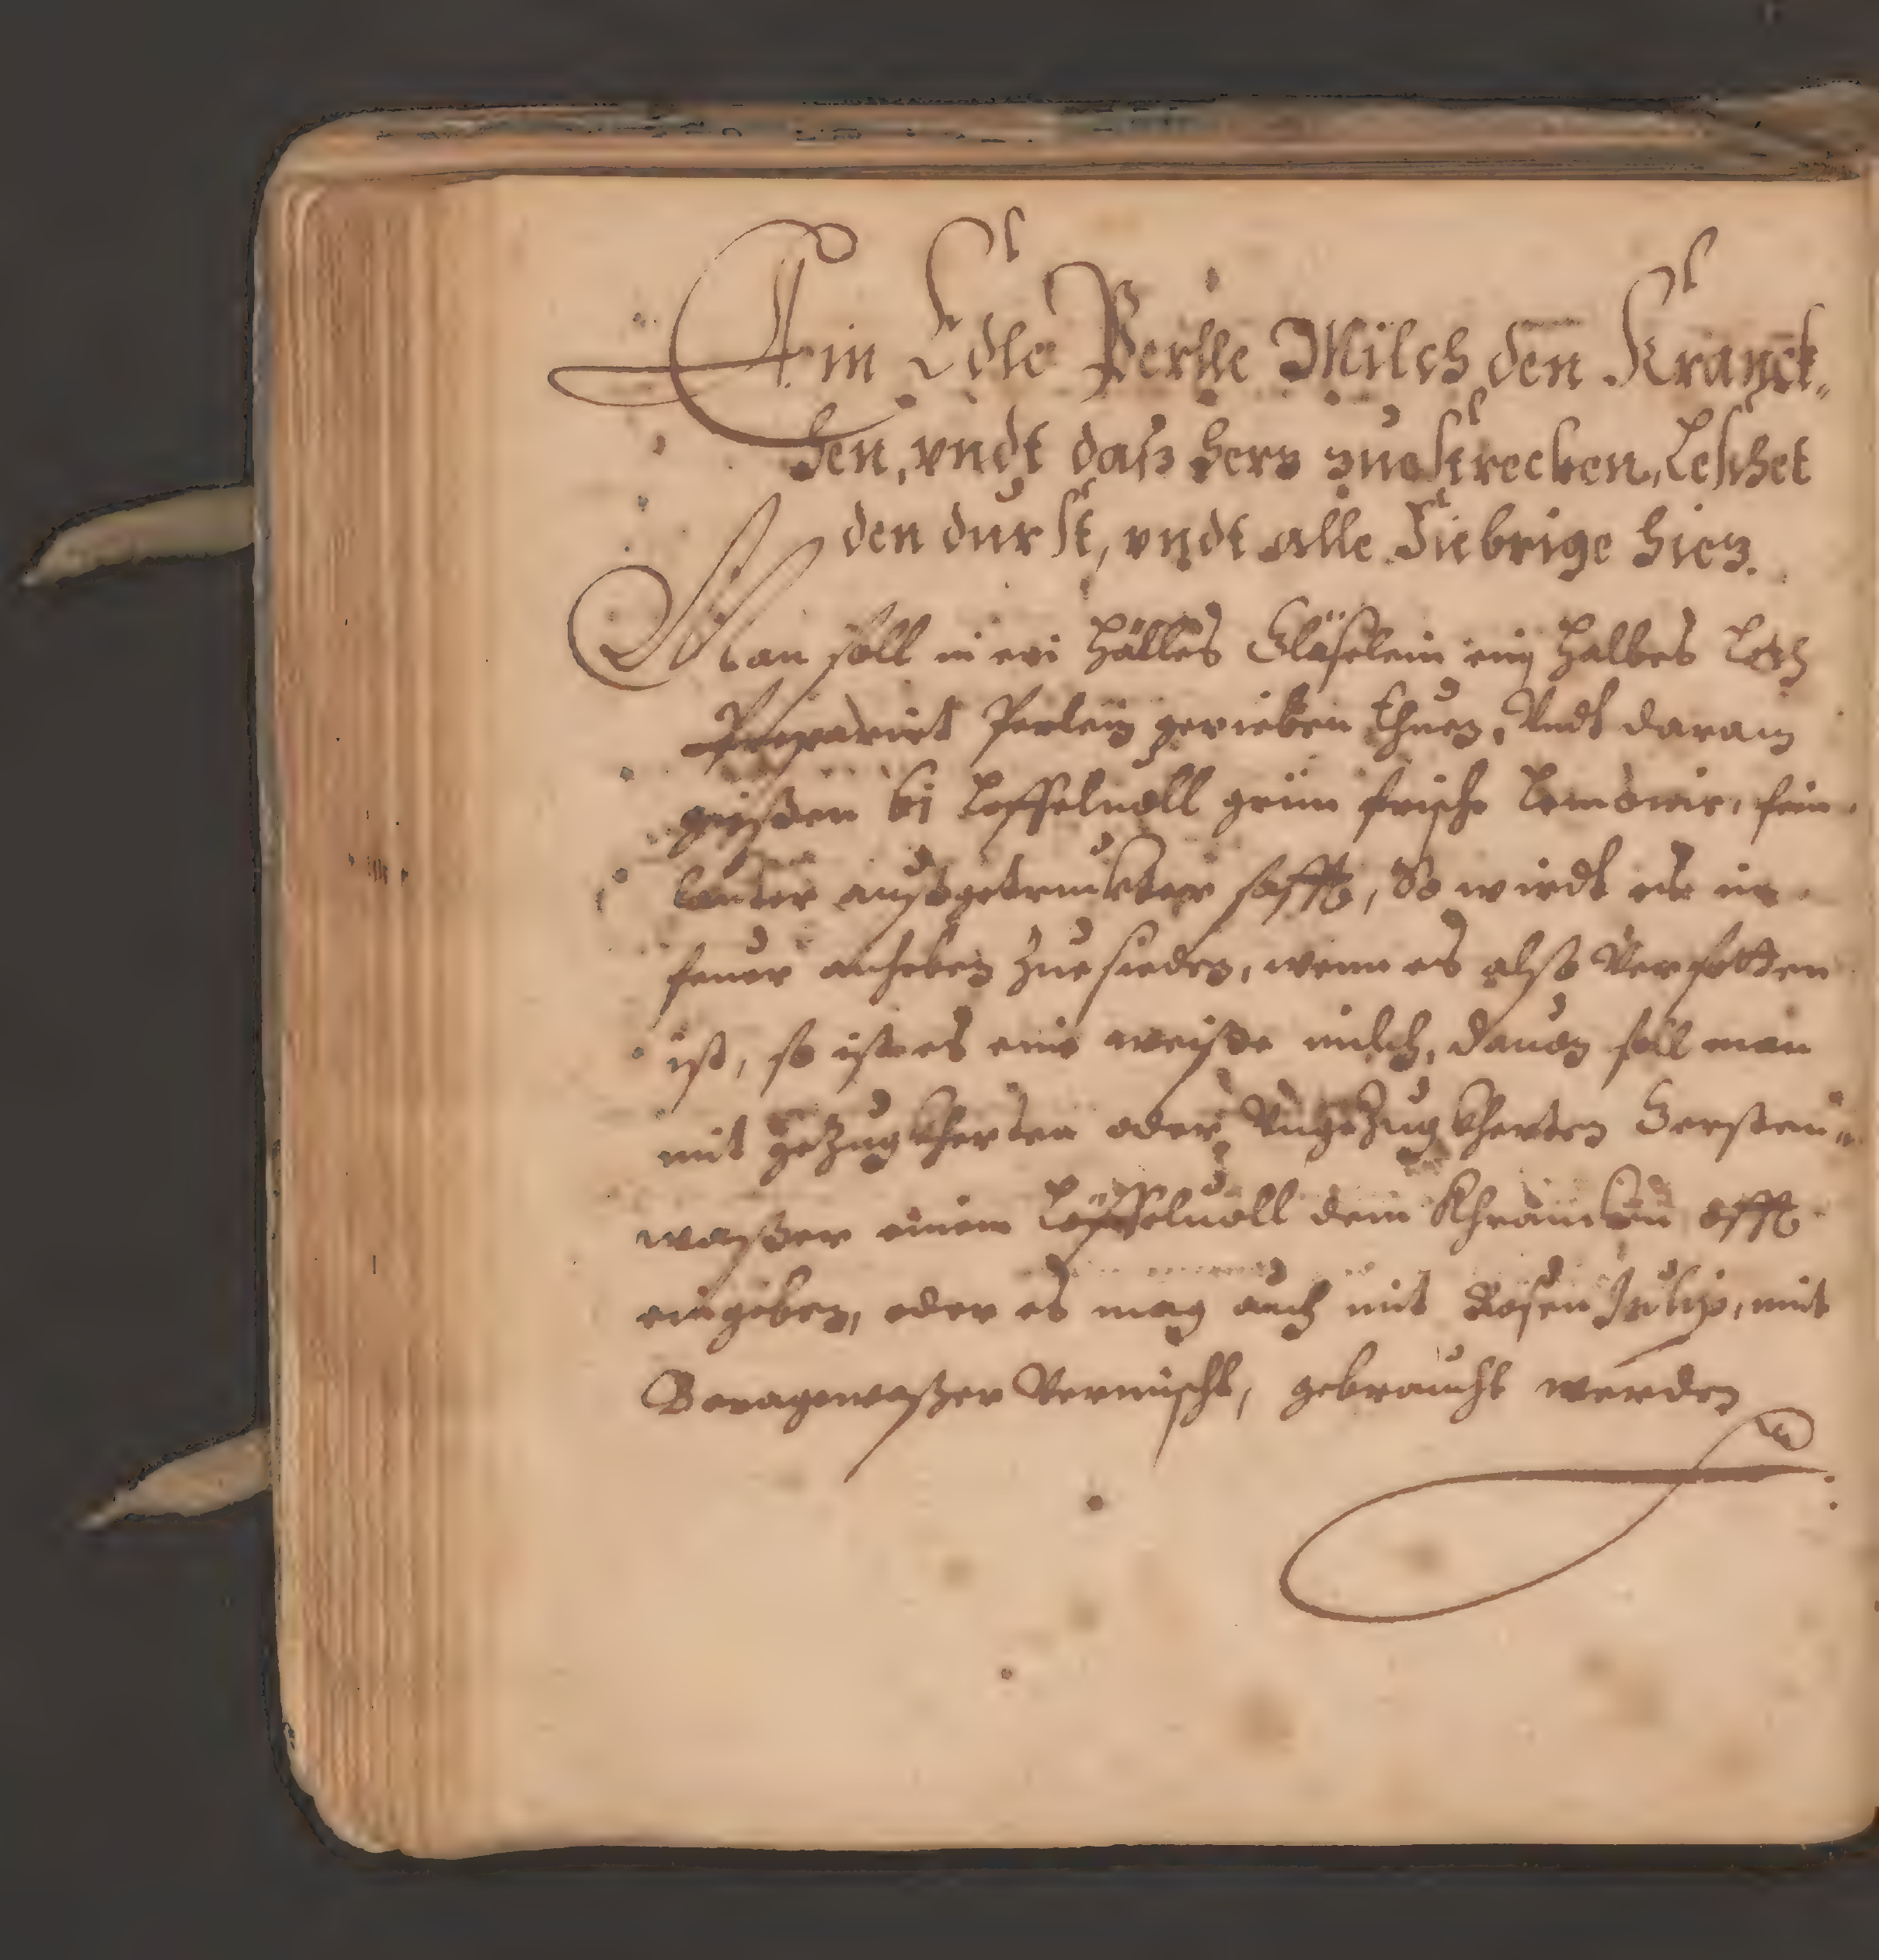 Ein Edle Perlle Milch den Kranck„
hen, vndt daß herz zue strecken, Leschet
den durst, vndt alle Fiebrige hiez.
Man soll in ein hälles Gläselein ein halbes Loth
Preparirt Perlein gerieben thuen, Undt darain
gießen bj Loffeluoll grün frische Lemonie, fein
lauter außgetrukter safft, So wirdt es im
feuer anheben zue sieden, wenn es also Versotten
ist, so ist es eine weiße milch, dauon soll man
mit gezugkherten oder Ungezugkherten Gersten„
waßer einem Löffeluoll dem Khrancken offt
eingeben, oder es mag auch mit Rosen Julip, mit
Boragewaßer Vermischt, gebraucht werden